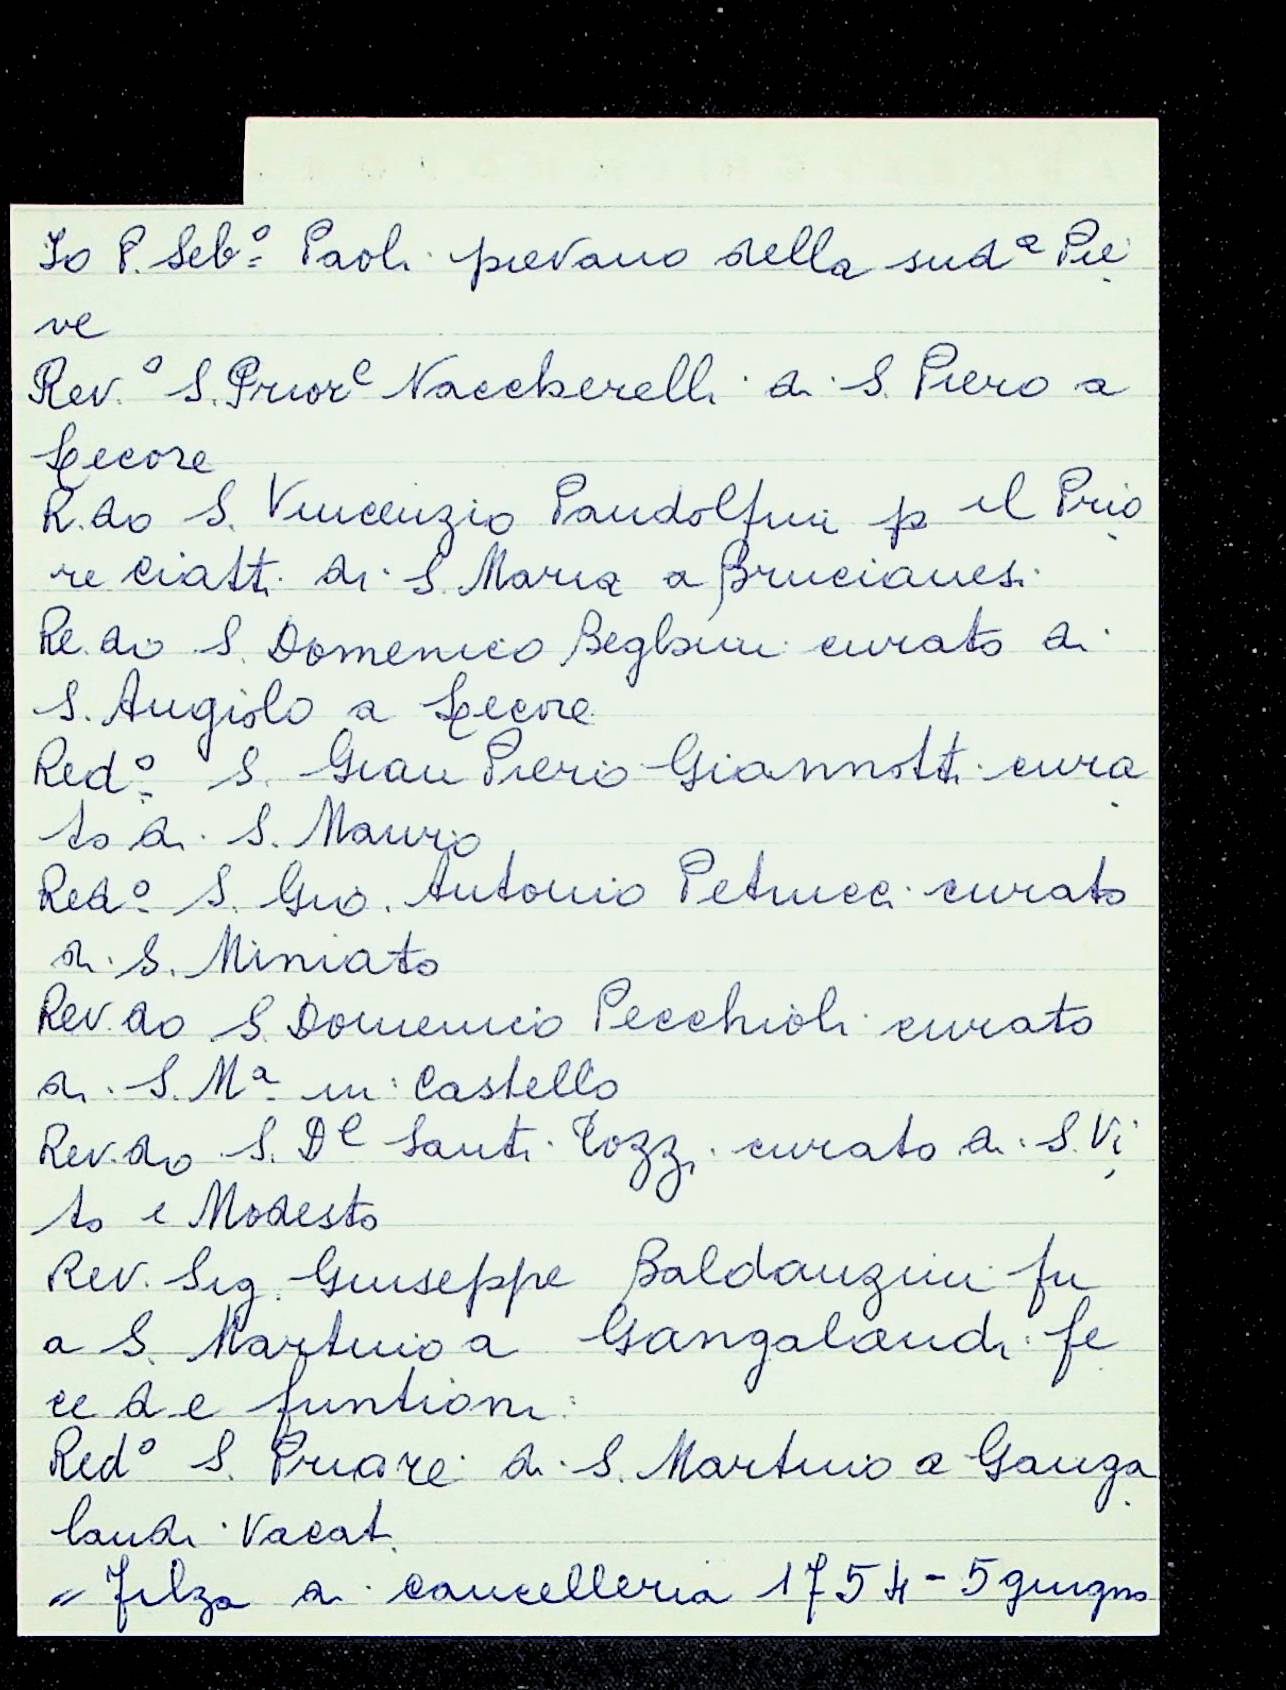 Io P. Seb.º Paoli pievano della sud.ª Pie
ve
Rev.º S. Prior.e Naccherelli di S. Piero a
Lecore
R.do S. Vincenzio Pandolfini p il Prio
re Ciatti di S. Maria a Brucianesi
Re.do S. Domenico Beghini curato di
S. Angiolo a Lecore
Red.º S. Gian Piero Giannotti cura
to di S. Mauro
Red.º S. Gio. Antonio Petrucci curato
di S. Miniato
Rev.do S. Domenico Pecchioli curato
di S. M.ª in Castello
Rev.do S. D.e Santi Tozzi curato di S. Vi
to e Modesto
Rev. Sig. Giuseppe Baldanzini fu
a S. Martino a Gangalandi fe
ce d e funtioni
Red.º S. Priore di S. Martino a Ganga
landi Vacat.
" Filza di cancelleria 1754 - 5 giugno